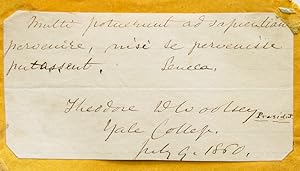 Multi potuerunt ad sapientiam
pervenire, nisi se pervenisse
putassent. Seneca.
Theodore D Woolsey President
Yale College.
July 9. 1860.